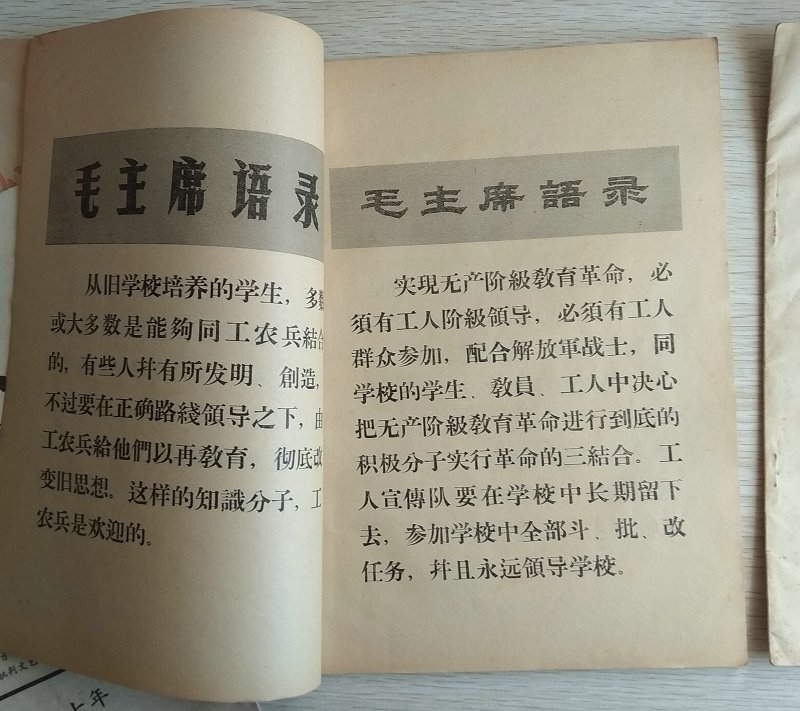 毛主席语录
从旧学校培养的学生，多数
或大多数是能夠同工农兵結合
的，有些人幷有所发明、創造，
不过要在正确路綫領导之下，由
工农兵給他們以再敎育，彻底改
变旧思想。这样的知識分子，工
农兵是欢迎的。
毛主席語录
实現无产阶級敎育革命，必
須有工人阶級領导，必須有工人
群众参加，配合解放軍战士，同
学校的学生、敎員、工人中决心
把无产阶級敎育革命进行到底的
积极分子实行革命的三結合。工
人宣傳队要在学校中长期留下
去，参加学校中全部斗、批、改
任务，幷且永远領导学校。
方
批判文
十年